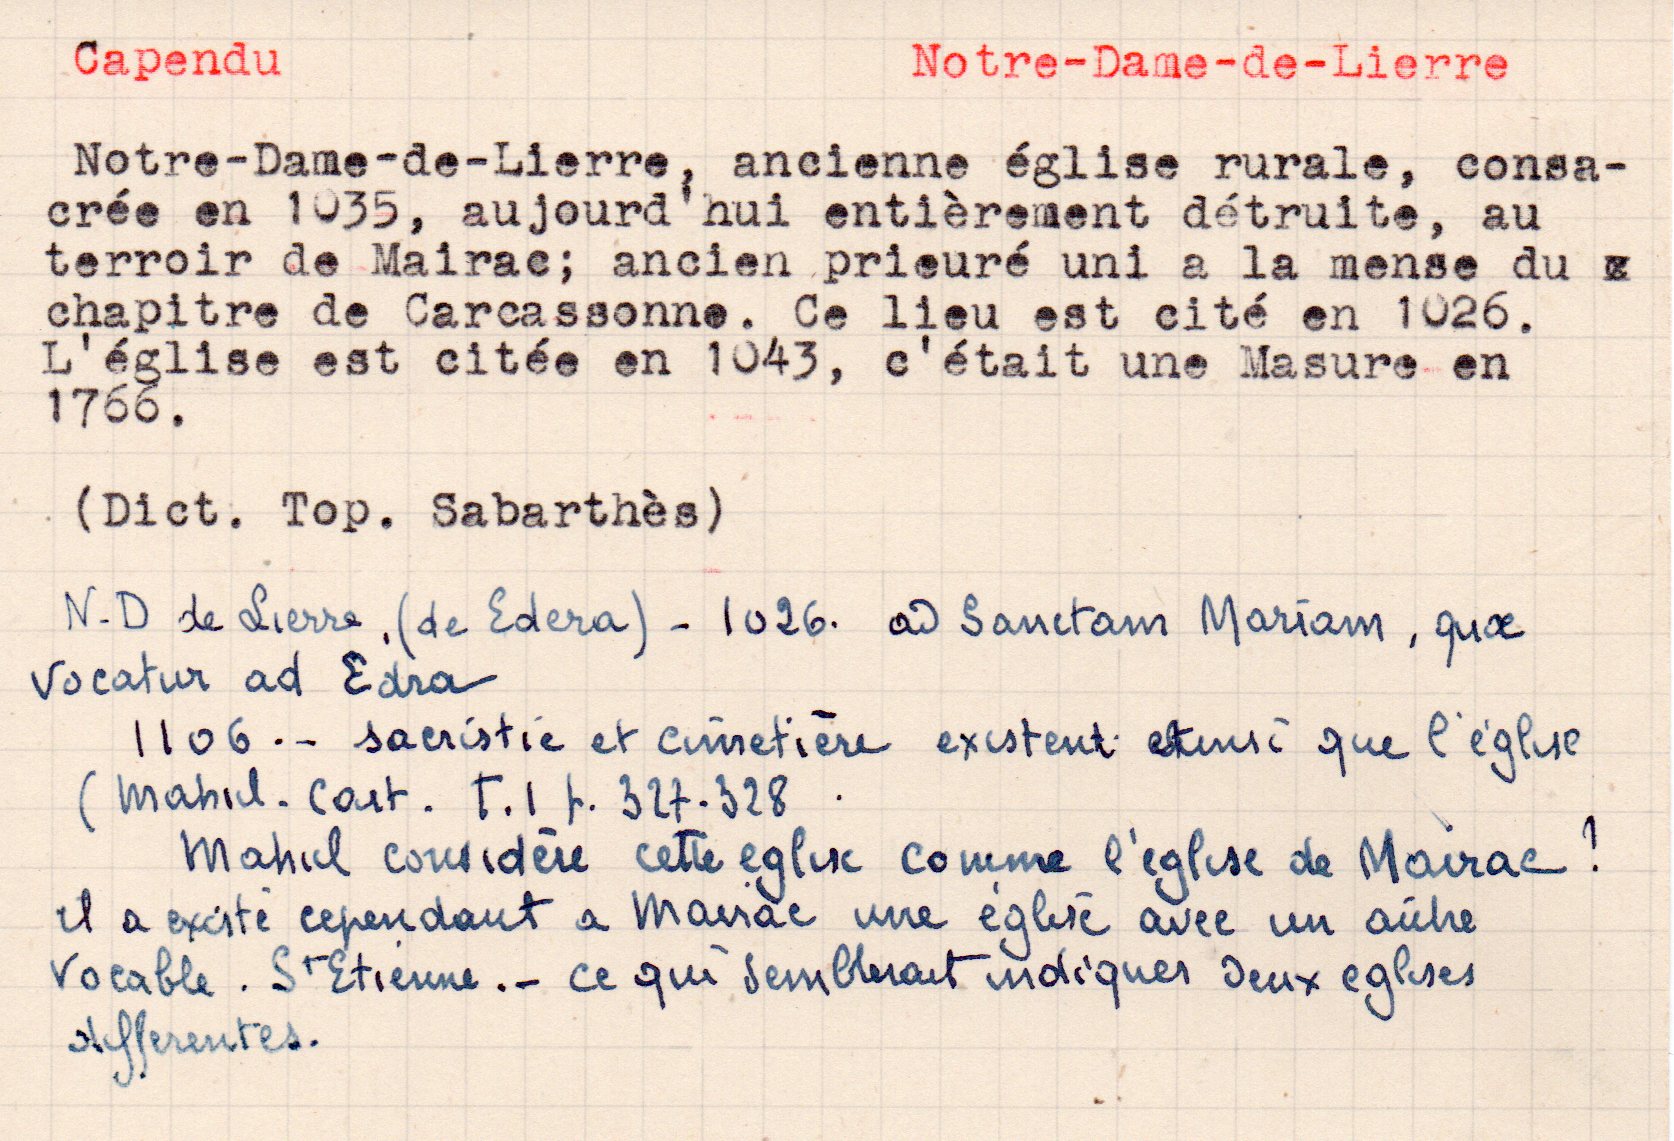 Capendu Notre-Dame-de-Lierre
Notre-Dame-de-Lierre, ancienne église rurale, consa-
crée en 1035, aujourd'hui entièrement détruite, au
terroir de Mairac; ancien prieuré uni a la mense du
chapitre de Carcassonne. Ce lieu est cité en 1026.
L'église est citée en 1043, c'était une Masure en
1766.
(Dict. Top. Sabarthès)
N-D de Lierre, (de Edera) - 1026. ad Sanctam Mariam, quæ
vocatur ad Edra
1106.- sacristie et cimetière existent que l'église
(Mahul. Cart. T.1 p. 327.328.
Mahul considère cette eglise comme l'église de Mairac!
il a existé cependant a Mairac une église avec un autre
vocable. St Etienne.- ce qui semblerait indiquer deux eglises
differentes.